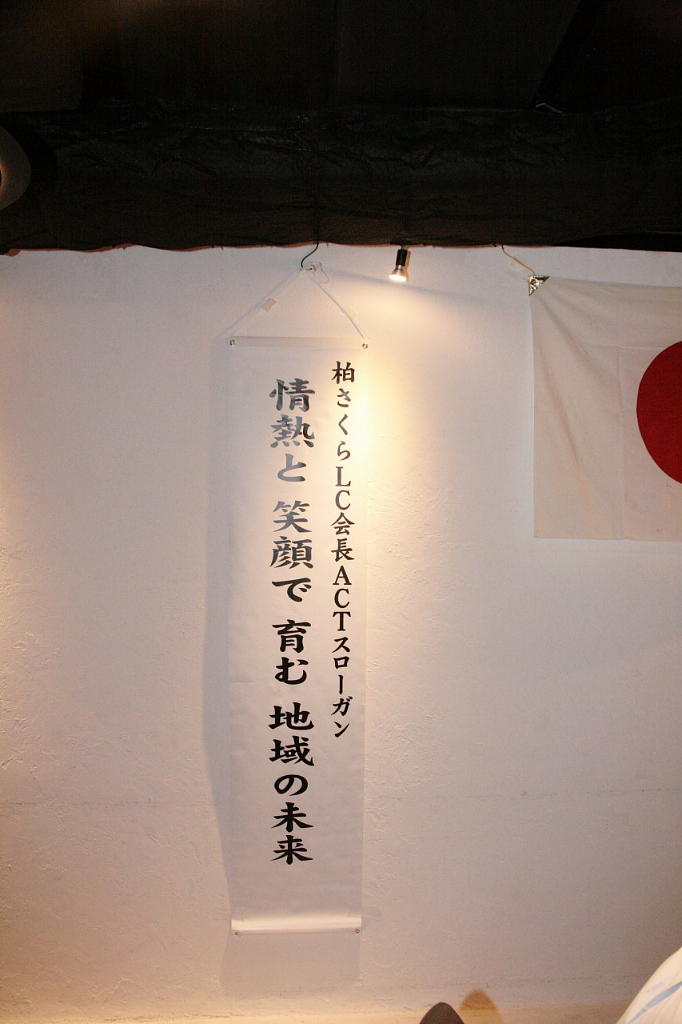 柏さくらLC会長ACTスローガン
情熱と 笑顔で 育む 地域の未来